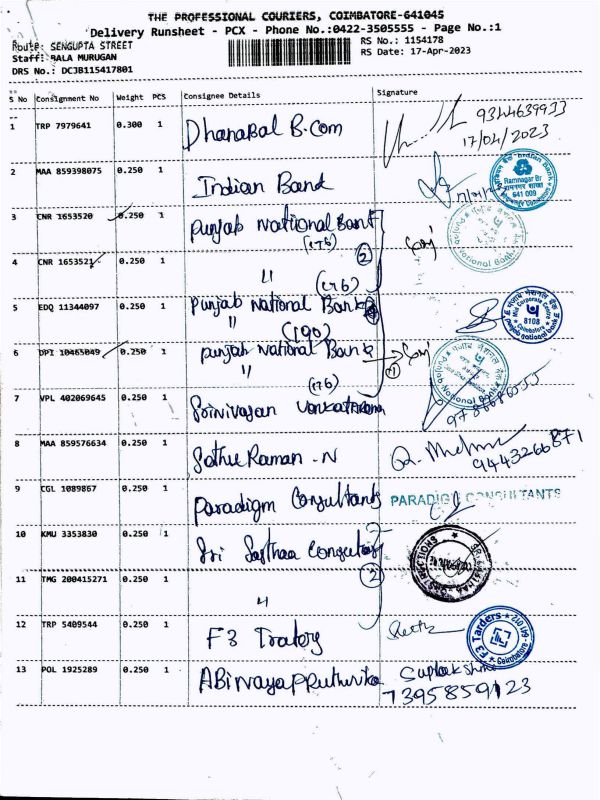 THE PROFESSIONAL COURIERS, COIMBATORE-641045
Delivery Runsheet - PCX - Phone No.:0422-3505555 - Page No.:1
Route: SENGUPTA STREET
RS No.: 1154178
Staff: BALA MURUGAN
RS Date: 17-Apr-2023
DRS No.: DCJB115417801
S No Consignment No Weight PCS Consignee Details Signature
1 TRP 7979641 0.300 1 Dhanabal B.Com 9344639933
17/04/2023
2 MAA 859398075 0.250 1 Indian Bank
Indian Bank
Ramnagar Br
रामनगर शाखा
641 009
3 CNR 1653520 0.250 1 Punjab National Bank
4 CNR 1653521 0.250 1 "
2
5 EDQ 11344097 0.250 1 Punjab National Bank
"
(190)
8108
Coimbatore
punjab national bank
6 DPI 10465049 0.250 1 punjab National Bank
"
1
7 VPL 402069645 0.250 1 Srinivasan
8 MAA 859576634 0.250 1 Sathu Raman - N
9443266871
9 CGL 1089867 0.250 1 Paradigm Consultants PARADIGM CONSULTANTS
10 KMU 3353830 0.250 1 Sri Sasthaa
11 TMG 200415271 0.250 1 "
2
12 TRP 5409544 0.250 1 F3
F3 Tarders
Coimbatore - 641 012
13 POL 1925289 0.250 1
7395859123